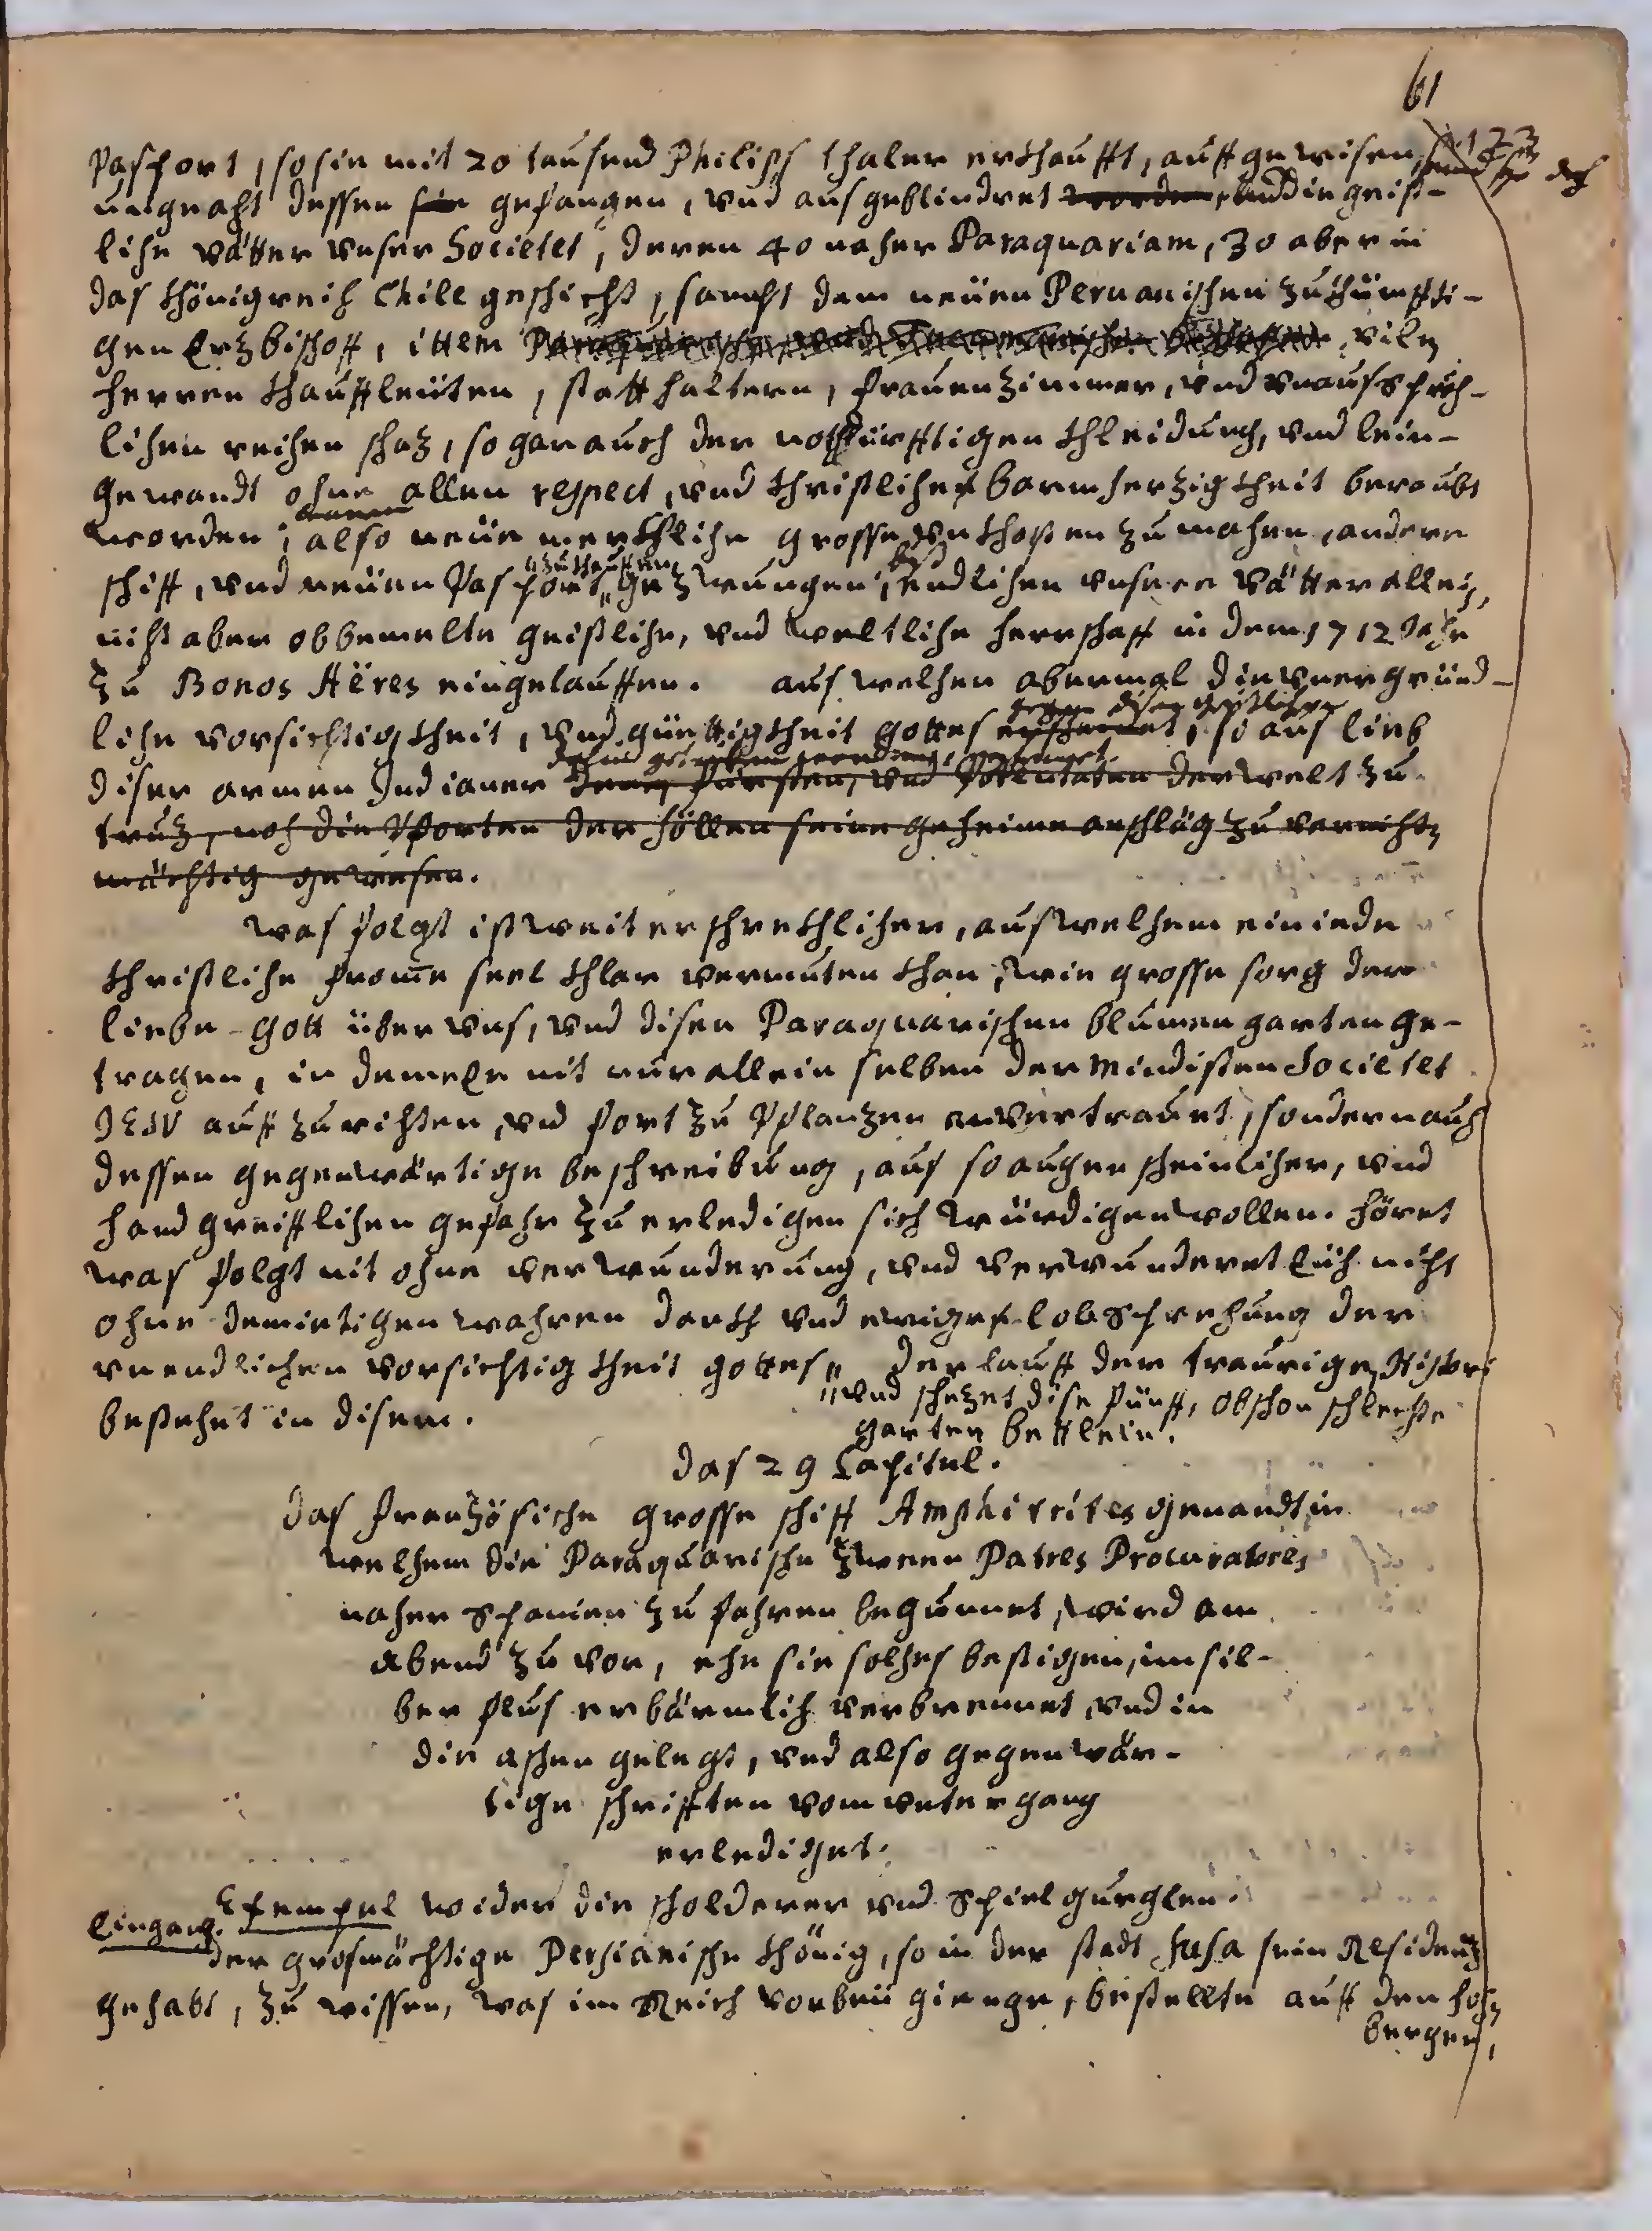 61
Pasport, so sie mit 20 tausend Philipps thaler erkhaufft, auffgewisen,
ungeacht dessen sie gefangen, vnd ausgeblindret worden, vnd die geist-
liche vätter vnser Societet, deren 40 nacher Paraquariam, 30 aber in
das Khönigreich Chile geschickt, sambt dem neüen Peruanischen zukhünffti-
gen Ertzbischoff, ittem viln
herren Khauffleüten, statthaltern, frauenzimmer, vnd vnausspräch-
lichen reichen schaz, so gar auch der nothdürfftigen Khleidung, vnd lein-
gewandt ohne allen respect, vnd Christlicher barmherzigkheit beraubt
worden, also neüe merckhliche grosse vnkhosten zu machen, andere
zukhauffen
schiff, vnd neüen Pasport, gezwungen, bis endlichen vnsere vätter allein,
nicht aber obbemelte geistliche, vnd weltliche herrschafft in dem 1712 Jahr
zu Bonos Aëres eingelauffen. aus welchen abermal die vnergründ-
liche vorsichtigkheit, vnd güttigkheit gottes erscheinet, so aus lieb
gegen diser geistlichen
diser armen Indianer deme fürsten, vnd Potentaten der welt zu
truz, noch die Pforten der höllen seine geheime anschläg zu vernichtn
mächtig gewesen.
was folgt ist weit erschreckhlicher, aus welchem ein iede
Christliche frome seel khlar vermuten khan, wie grosse sorg der
liebe gott über vns, vnd disen Paraquarischen blumengarten ge-
tragen, in deme Er nit nur allein selben der Mindisten Societet
JESU auffzurichten, vnd fort zu Pflanzen anvertrauet, sondern auch
dessen gegenwärtige beschreibung, aus so augenscheinlicher, vnd
handgreifflichen gefahr zu erledigen sich würdigen wollen. höret
was folgt nit ohne verwunderung, vnd verwunderet Euch nicht
ohne demietigen wahren danckh vnd ewiger lobsprechung der
vnendlichen vorsichtigkheit gottes,, der lauff der traurigen Histori
,,vnd schezet dise fünff, obschon schlechte
bestehet in disem.
garten bettlein.
das 29 Capitul.
das französiche grosse schiff Amphitrites genandt, in
welchem die Paraquarische zween Patres Procuratores
nacher Spanien zu fahren begunnet, wird am
abend zu vor, ehe sie solches bestigen, im sil-
ber flus erbärmlich verbrennet, vnd in
die aschen gelegt, vnd also gegenwär-
tige schrifften vom vntergang
erlediget.
Exempel wider die scholderer vnd Spielgurglen.
Eingang.
der grosmächtige Persianische Khönig, so in der stadt Susa sein Residenz
gehabt, zu wissen, was im Reich vorbeü gienge, bestellte auff den hohn
bergen,